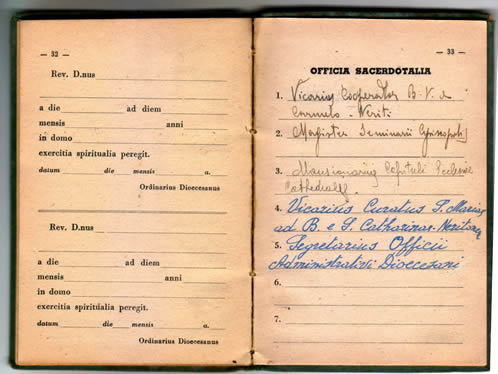 — 32 —
Rev. D.nus
a die ad diem
mensis anni
in domo
exercitia spiritualia peregit.
datum die mensis a.
Ordinarius Dioecesanus
Rev. D.nus
a die ad diem
mensis anni
in domo
exercitia spiritualia peregit.
datum die mensis a.
Ordinarius Dioecesanus
— 33 —
OFFICIA SACERDOTALIA
1. Vicarius Cooperator B. V. de
Carmelo - Neriti
2. Magister Seminarii
3. Mansionarius Capituli Ecclesiae
Cathedralis
4. Vicarius Curatus S. Mariae
ad B. e S. Catharinae - Neritone
5. Segretarius Officii
Administrativi Dioecesani
6.
7.